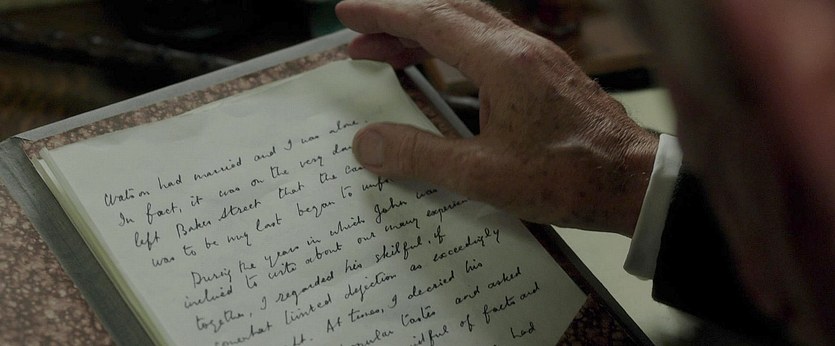 Watson had married and I was alone.
In fact, it was on the very da
left Baker Street that the ca
was to be my last began to unfo
During the years in which John was
inclined to write about our many experien
together, I regarded his skilful, if
somewhat limited depiction as exceedingly
At times, I decried his
popular tastes and asked
of facts and
had